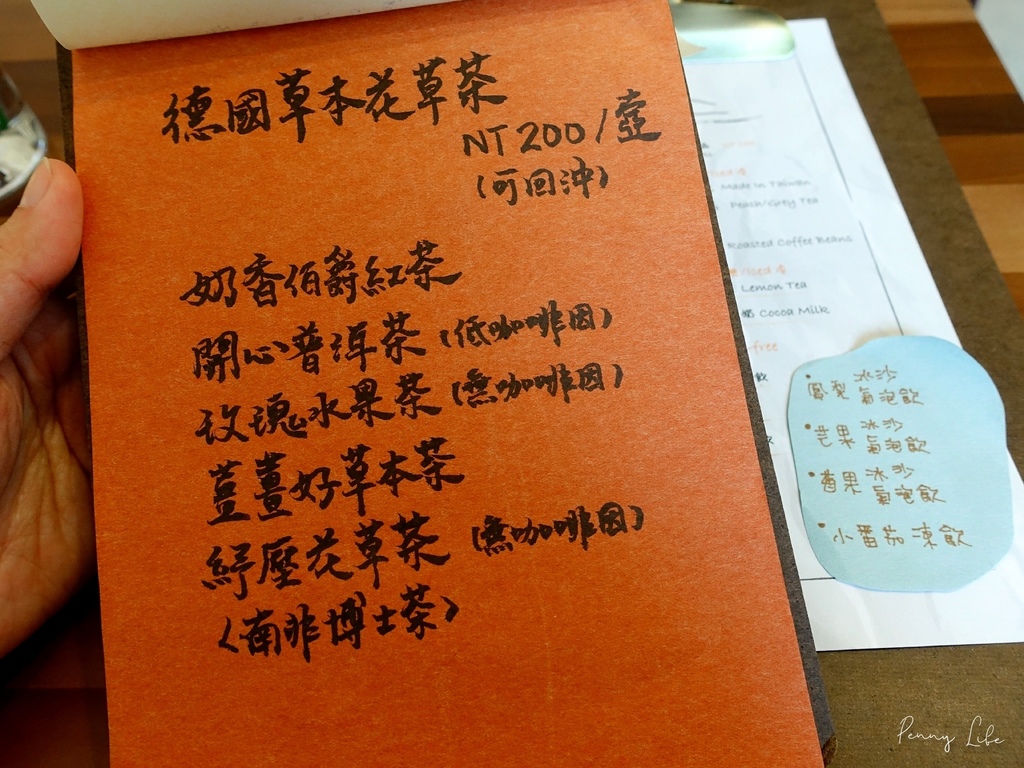 德國草本花草茶
NT200/壺
(可回沖)
奶香伯爵紅茶
開心普洱茶(低咖啡因)
玫瑰水果茶(無咖啡因)
薑薑好草本茶
紓壓花草茶(無咖啡因)
〈南非博士茶〉
Made in Taiwan
Peach/Grey Tea
Roasted Coffee Beans
Lemon Tea
Cocoa Milk
free
•鳳梨 冰沙
氣泡飲
•芒果 冰沙
氣泡飲
•百香果 冰沙
氣泡飲
•小番茄凍飲
Penny Life